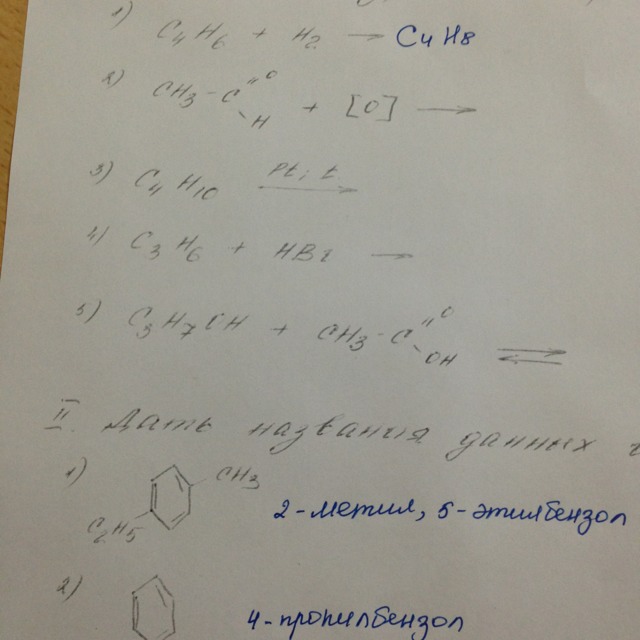 1) C4H6 + H2 → C4H8
2) CH3 - C =O -H + [O] →
3) C4H10 Pt, t →
4) C3H6 + HBr →
5) C3H7OH + CH3 - C =O -OH ⇌
II. Дать названия данных
1) CH3
C2H5
2-метил, 5-этилбензол
2)
4-пропилбензол